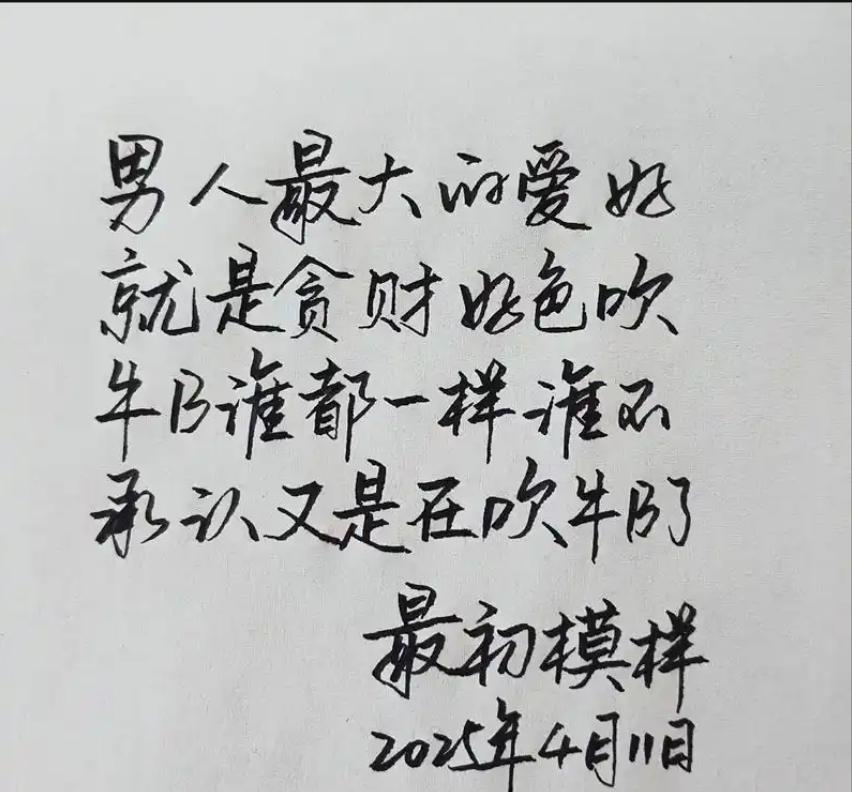 男人最大的爱好
就是贪财好色吹
牛B谁都一样谁不
承认又是在吹牛B了
最初模样
2025年4月11日